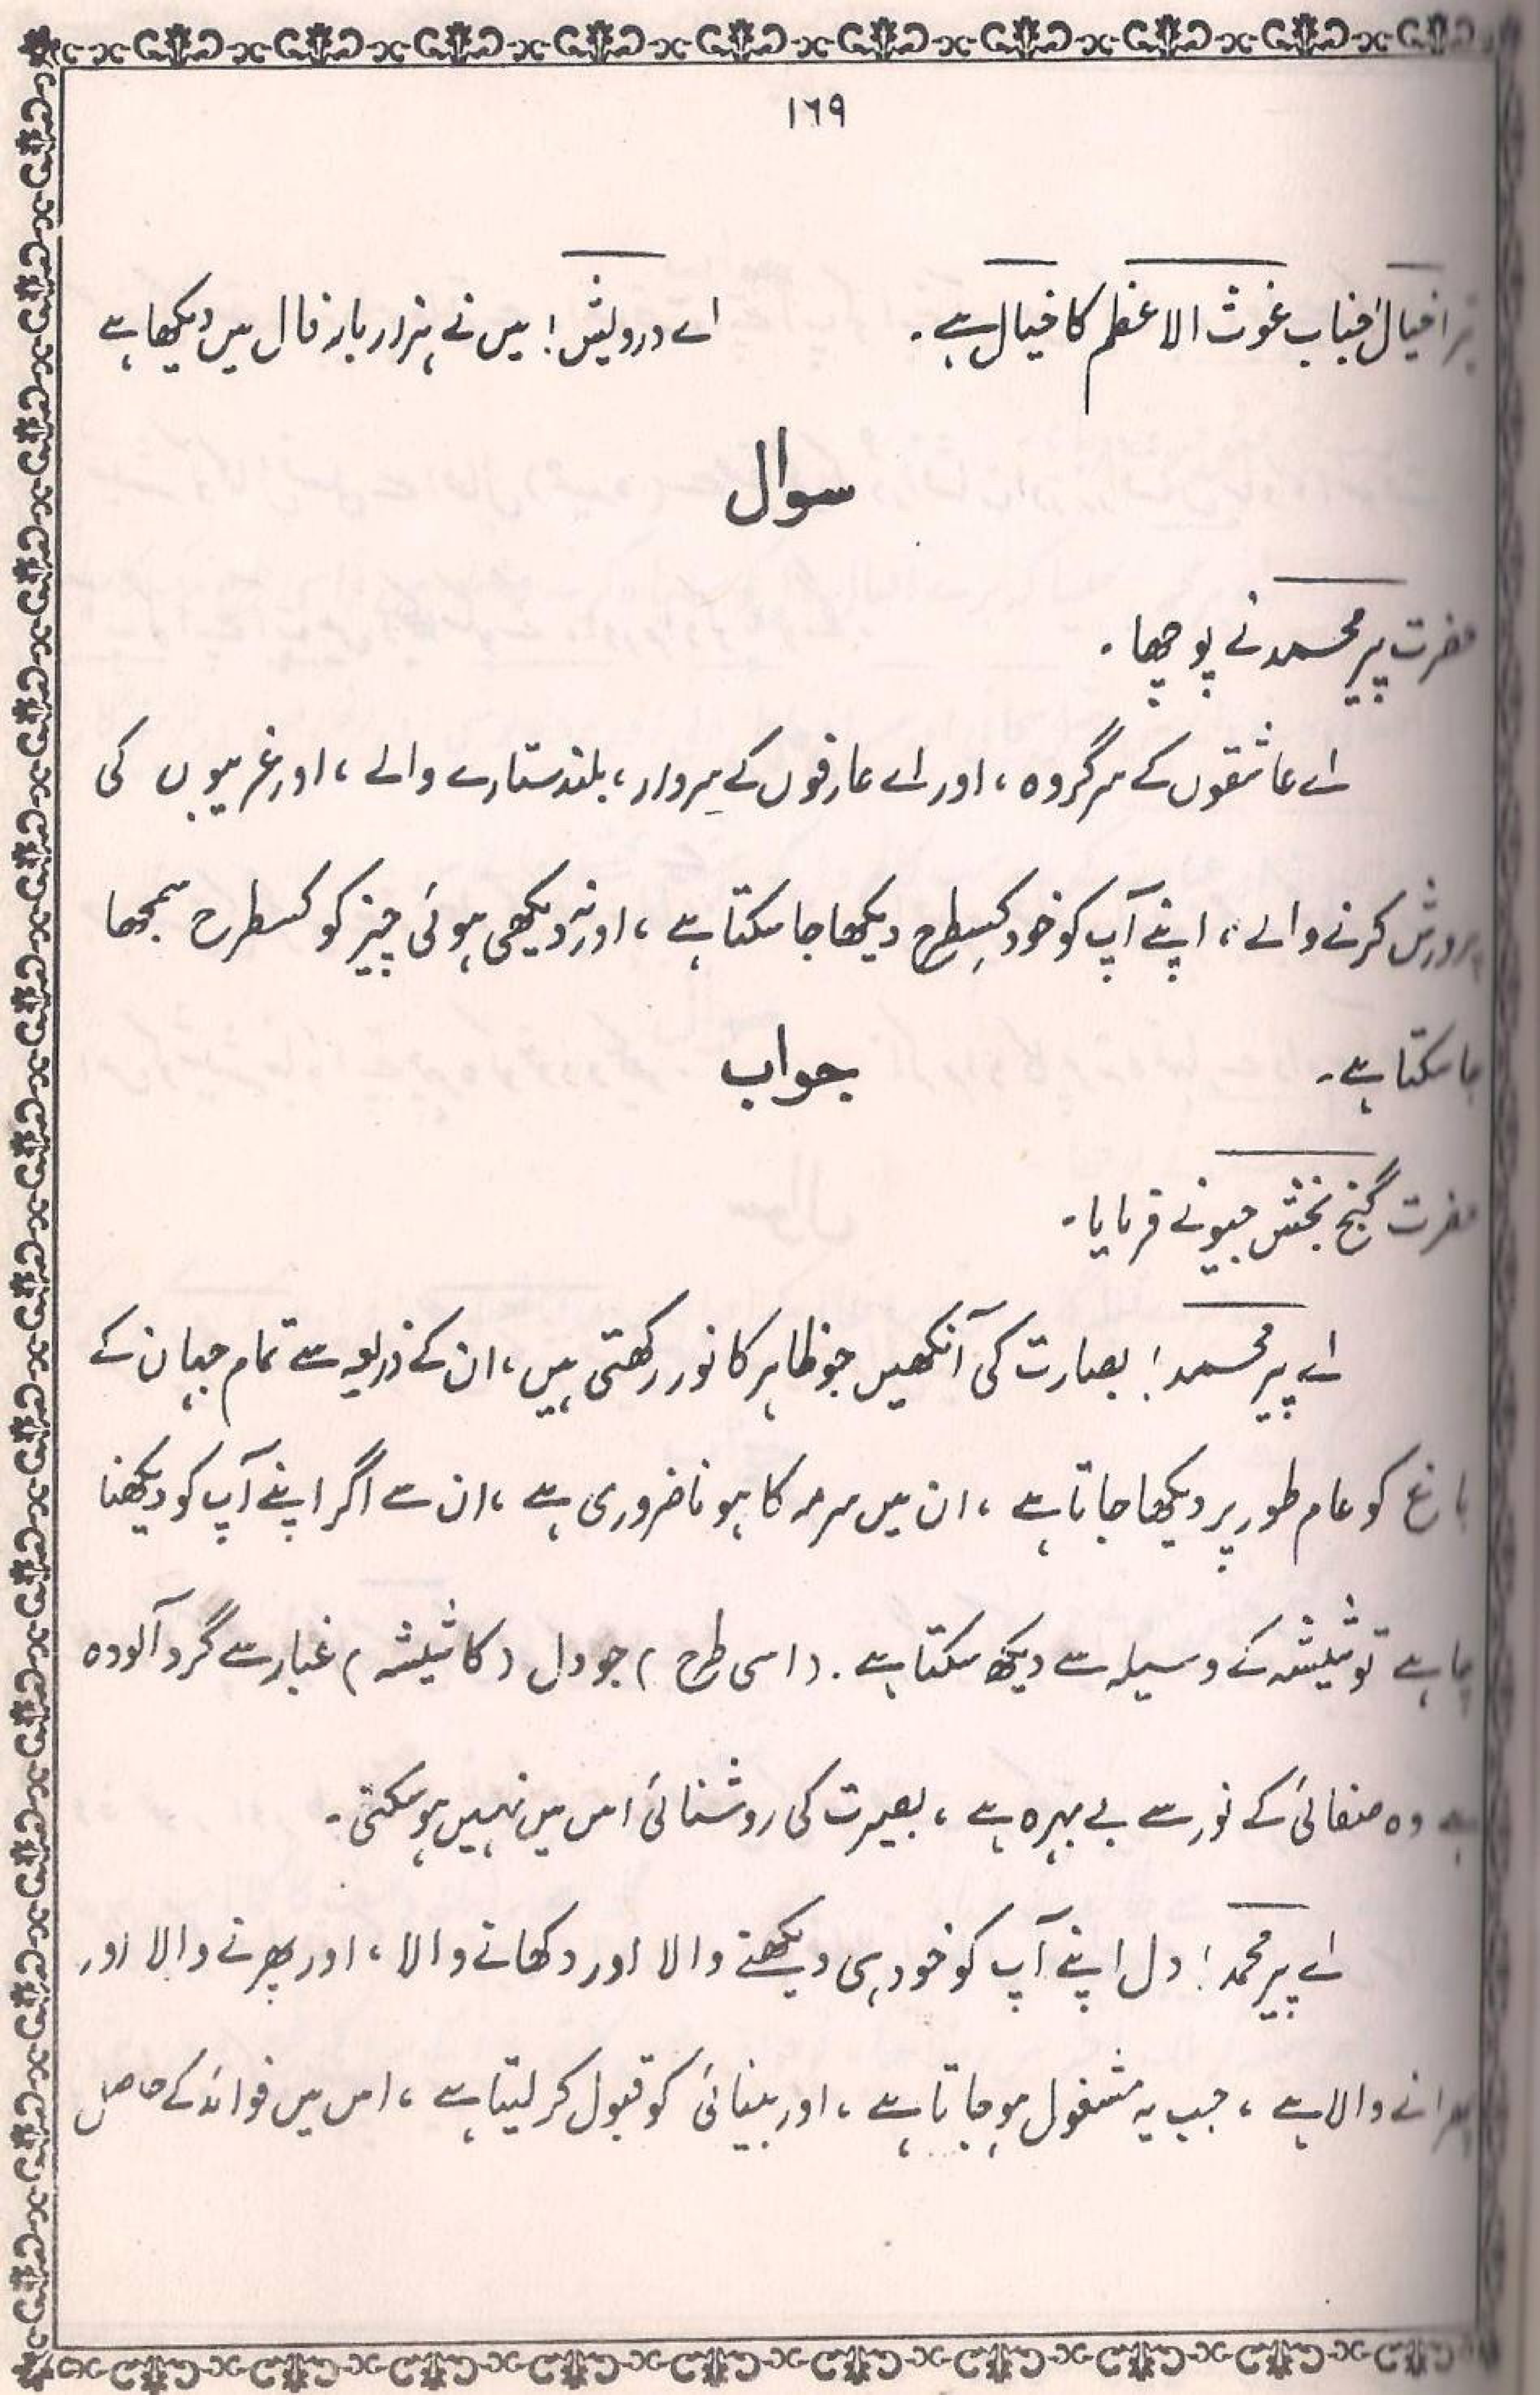 ۱۶۹
تیرا خیال جناب غوث الاعظم کا خیال ہے۔ اے درویش! میں نے ہزار بار فال میں دیکھا ہے
سوال
حضرت پیر محمد نے پوچھا۔
اے عاشقوں کے سرگروہ، اور اے عارفوں کے سردار، بلند ستارے والے، اور غریبوں کی
پرورش کرنے والے، اپنے آپ کو خود کسطرح دیکھا جا سکتا ہے، اور نہ دیکھی ہوئی چیز کو کسطرح سمجھا
جا سکتا ہے۔
جواب
حضرت گنج بخش جیو نے فرمایا۔
اے پیر محمد! بصارت کی آنکھیں جو ظاہر کا نور رکھتی ہیں، ان کے ذریعہ سے تمام جہان کے
باغ کو عام طور پر دیکھا جاتا ہے، ان میں سرمہ کا ہونا ضروری ہے، ان سے اگر اپنے آپ کو دیکھنا
چاہے تو شیشہ کے وسیلہ سے دیکھ سکتا ہے۔ (اسی طرح) جو دل (کا شیشہ) غبار سے گرد آلودہ
ہے وہ صفائی کے نور سے بے بہرہ ہے، بصیرت کی روشنائی اس میں نہیں ہو سکتی۔
اے پیر محمد! دل اپنے آپ کو خود ہی دیکھنے والا اور دکھانے والا، اور پھرنے والا اور
پھرانے والا ہے، جب یہ مشغول ہو جاتا ہے، اور بینائی کو قبول کر لیتا ہے، اس میں فوائد کے حاصل